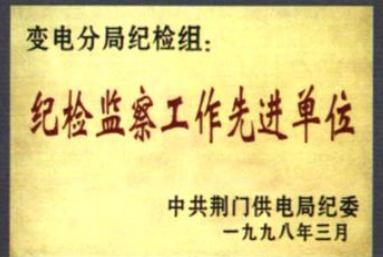 变电分局纪检组：
纪检监察工作先进单位
中共荆门供电局纪委
一九九八年三月